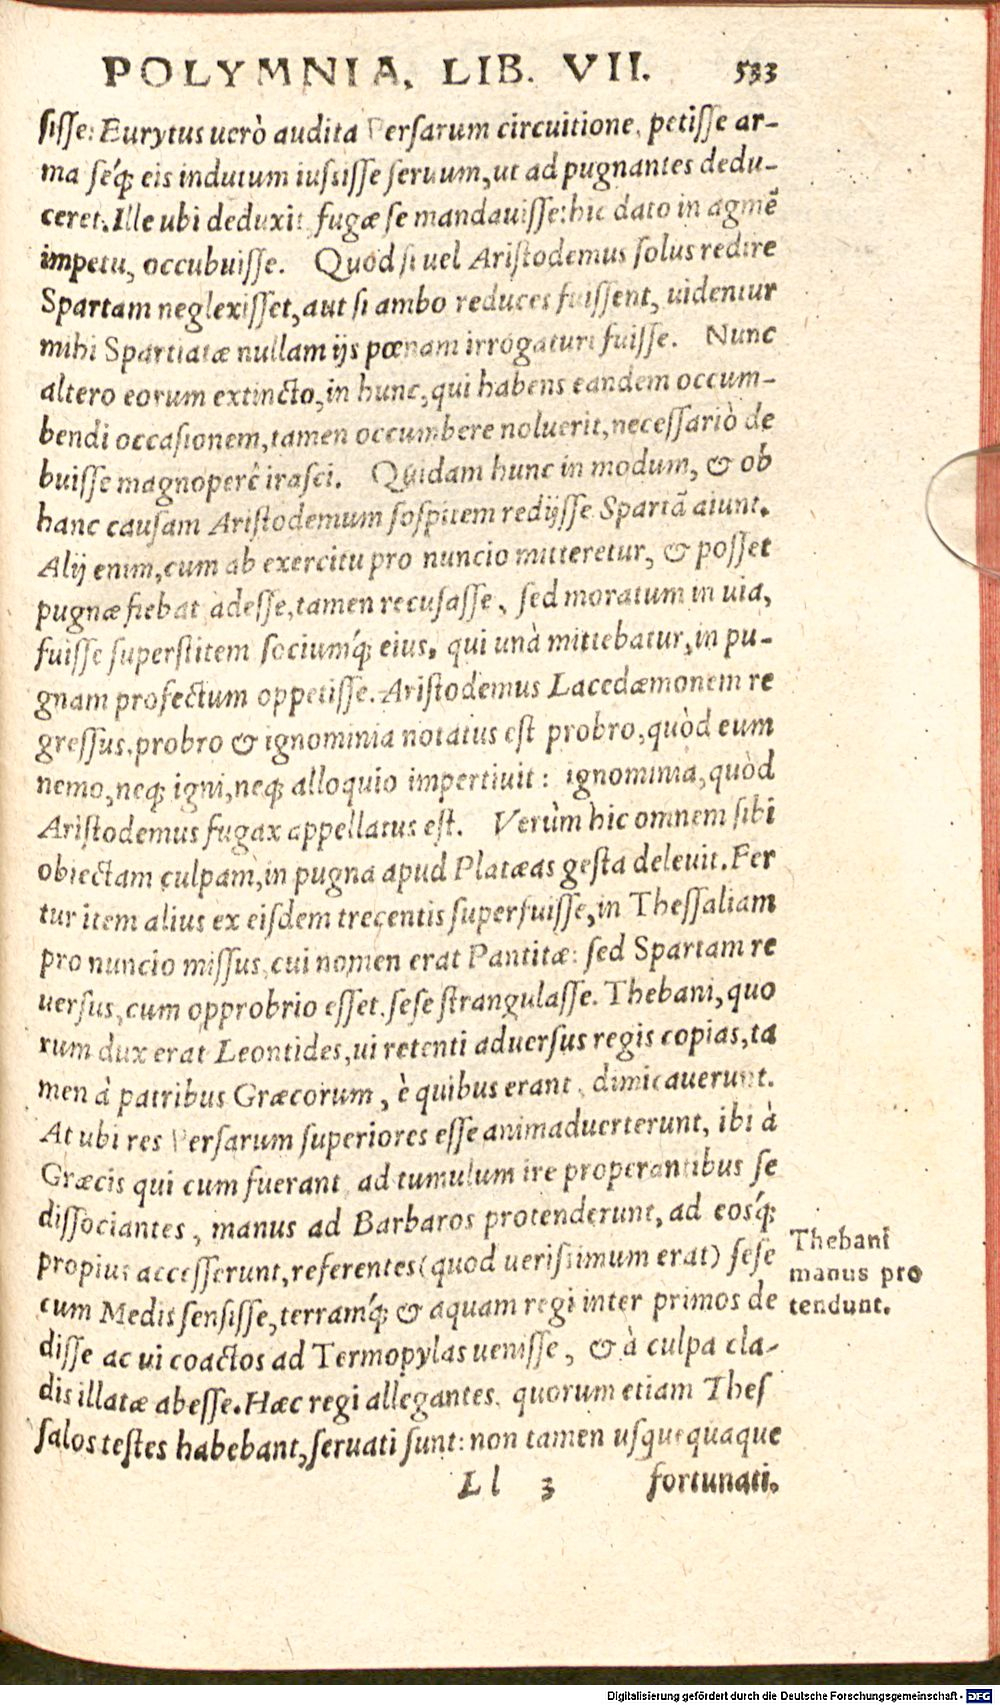 POLYMNIA, LIB. VII. 533
sisse: Eurytus uerò audita Persarum circuitione, petisse ar-
ma séq́; eis indutum iussisse seruum, ut ad pugnantes dedu-
ceret. Ille ubi deduxit, fugæ se mandauisse: hic dato in agmẽ
impetu, occubuisse. Quod si uel Aristodemus solus redire
Spartam neglexisset, aut si ambo reduces fuissent, uidentur
mihi Spartiatæ nullam ijs pœnam irrogaturi fuisse. Nunc
altero eorum extincto, in hunc, qui habens eandem occum-
bendi occasionem, tamen occumbere noluerit, necessariò de
buisse magnoperè irasci. Quidam hunc in modum, & ob
hanc causam Aristodemum sospitem redijsse Spartã aiunt.
Alij enim, cum ab exercitu pro nuncio mitteretur, & posset
pugnæ fiebat adesse, tamen recusasse, sed moratum in uia,
fuisse superstitem sociumq́; eius, qui unà mittebatur, in pu-
gnam profectum oppetisse. Aristodemus Lacedæmonem re
gressus, probro & ignominia notatus est probro, quòd eum
nemo, neq; igni, neq; alloquio impertiuit: ignominia, quòd
Aristodemus fugax appellatus est. Verùm hic omnem sibi
obiectam culpam, in pugna apud Platæas gesta deleuit. Fer
tur item alius ex eisdem trecentis superfuisse, in Thessaliam
pro nuncio missus, cui nomen erat Pantitæ: sed Spartam re
uersus, cum opprobrio esset, sese strangulasse. Thebani, quo
rum dux erat Leontides, ui retenti aduersus regis copias, ta
men à patribus Græcorum, è quibus erant, dimicauerunt.
At ubi res Persarum superiores esse animaduerterunt, ibi à
Græcis qui cum fuerant, ad tumulum ire properantibus se
dissociantes, manus ad Barbaros protenderunt, ad eosq́;
propius accesserunt, referentes (quod uerissimum erat) sese
cum Medis sensisse, terramq́; & aquam regi inter primos de
disse ac ui coactos ad Termopylas uenisse, & à culpa cla-
dis illatæ abesse. Hæc regi allegantes, quorum etiam Thes
salos testes habebant, seruati sunt: non tamen usquequaque
Ll 3 fortunati.
Thebani
manus pro
tendunt.
Digitalisierung gefördert durch die Deutsche Forschungsgemeinschaft - DFG